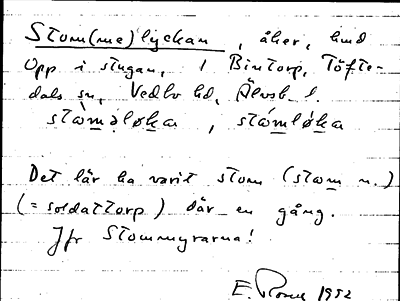 Stom(me)lyckan, åker, lund
Opp i stugan, 1 Bintorp, Töfte-
dals sn, Vedbo hd, Älvsb. l.
stòmǝløka, stómløka
Det lär ha varit stom (stom n.)
(= soldattorp) där en gång.
Jfr Stommyrarna!
E. 1952